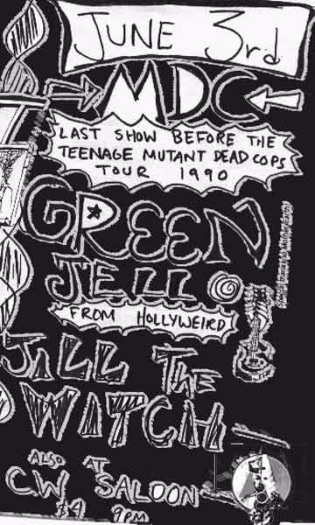 JUNE 3rd
MDC
LAST SHOW BEFORE THE
TEENAGE MUTANT DEAD COPS
TOUR 1990
GREEN
JELLO
FROM HOLLYWEIRD
JILL THE
WITCH
ALSO AT
C.W. SALOON
$4 9PM